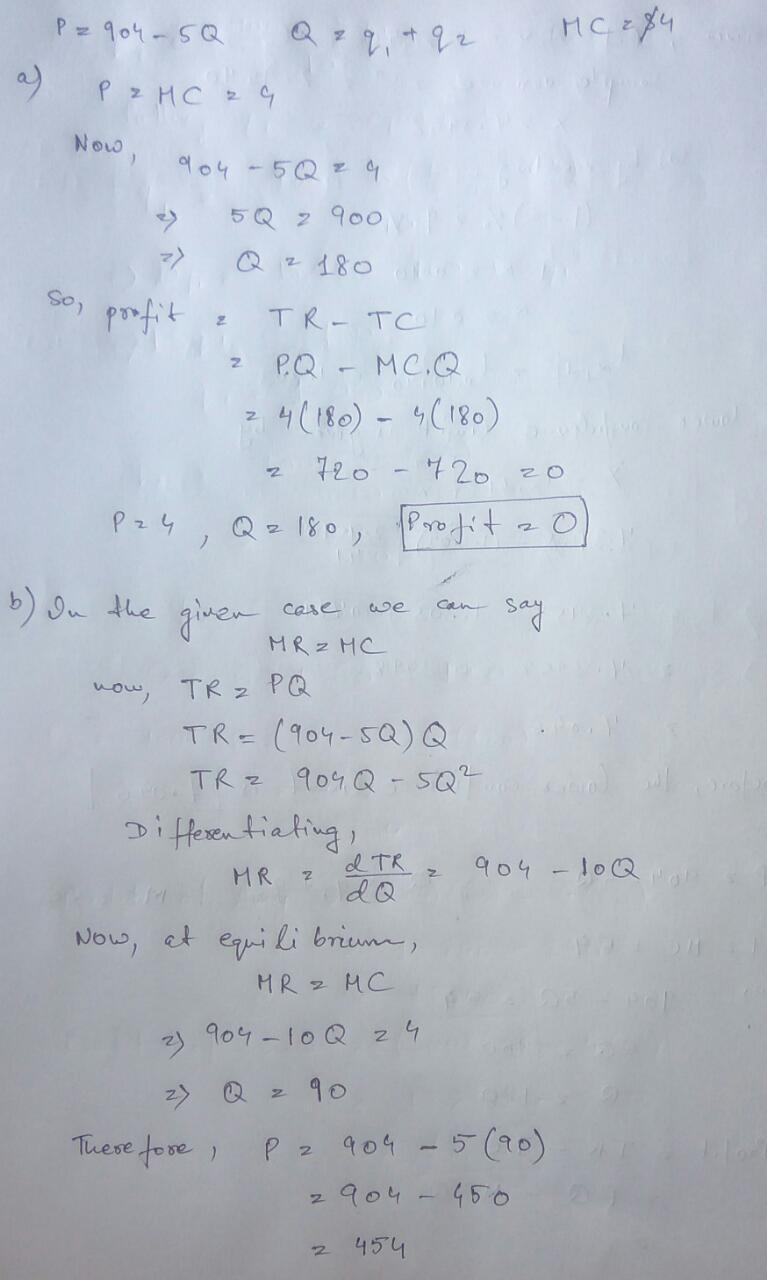 P = 904 - 5Q Q = q₁ + q₂ MC = $4
a) P = MC = 4
Now, 904 - 5Q = 4
=> 5Q = 900
=> Q = 180
So, profit = TR - TC
= P.Q - MC.Q
= 4(180) - 4(180)
= 720 - 720 = 0
P = 4, Q = 180, Profit = 0
b) In the given case we can say
MR = MC
now, TR = PQ
TR = (904-5Q)Q
TR = 904Q - 5Q²
Differentiating,
MR = dTR/dQ = 904 - 10Q
Now, at equilibrium,
MR = MC
=> 904 - 10Q = 4
=> Q = 90
Therefore, P = 904 - 5(90)
= 904 - 450
= 454